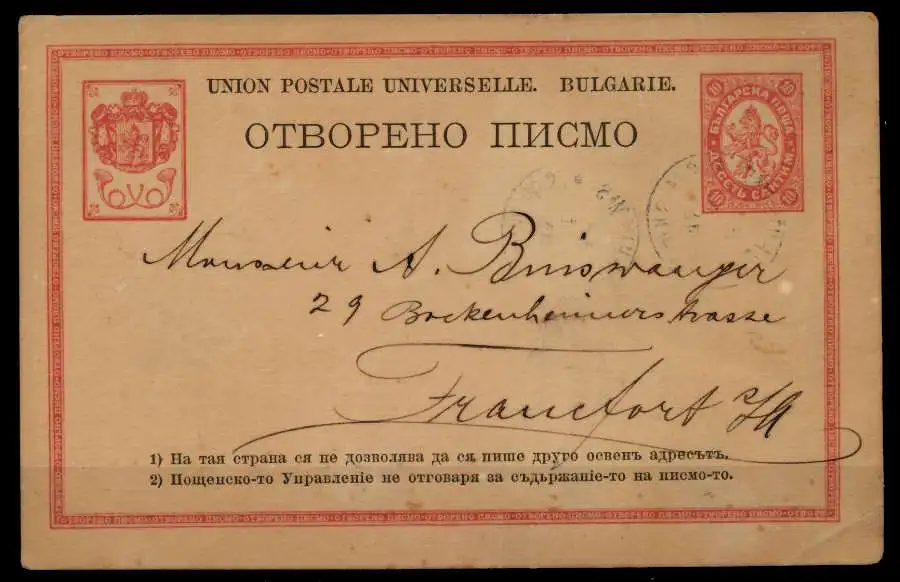 UNION POSTALE UNIVERSELLE. BULGARIE.
ОТВОРЕНО ПИСМО
10 10
БЪЛГАРСКА ПОЩА
ДЕСЕТЬ САНТИМ.
10 10
Monsieur A. Binswanger
29 Bockenheimerstrasse
Francfort a/M
1) На тая страна ся не дозволява да ся пише друго освенъ адресътъ.
2) Пощенско-то Управление не отговаря за съдържание-то на писмо-то.